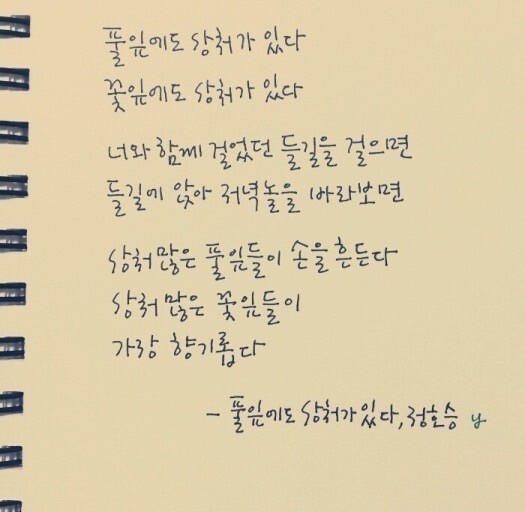 풀잎에도 상처가 있다
꽃잎에도 상처가 있다
너와 함께 걸었던 들길을 걸으면
들길에 앉아 저녁놀을 바라보면
상처 많은 풀잎들이 손을 흔든다
상처 많은 꽃잎들이
가장 향기롭다
- 풀잎에도 상처가 있다, 정호승 y